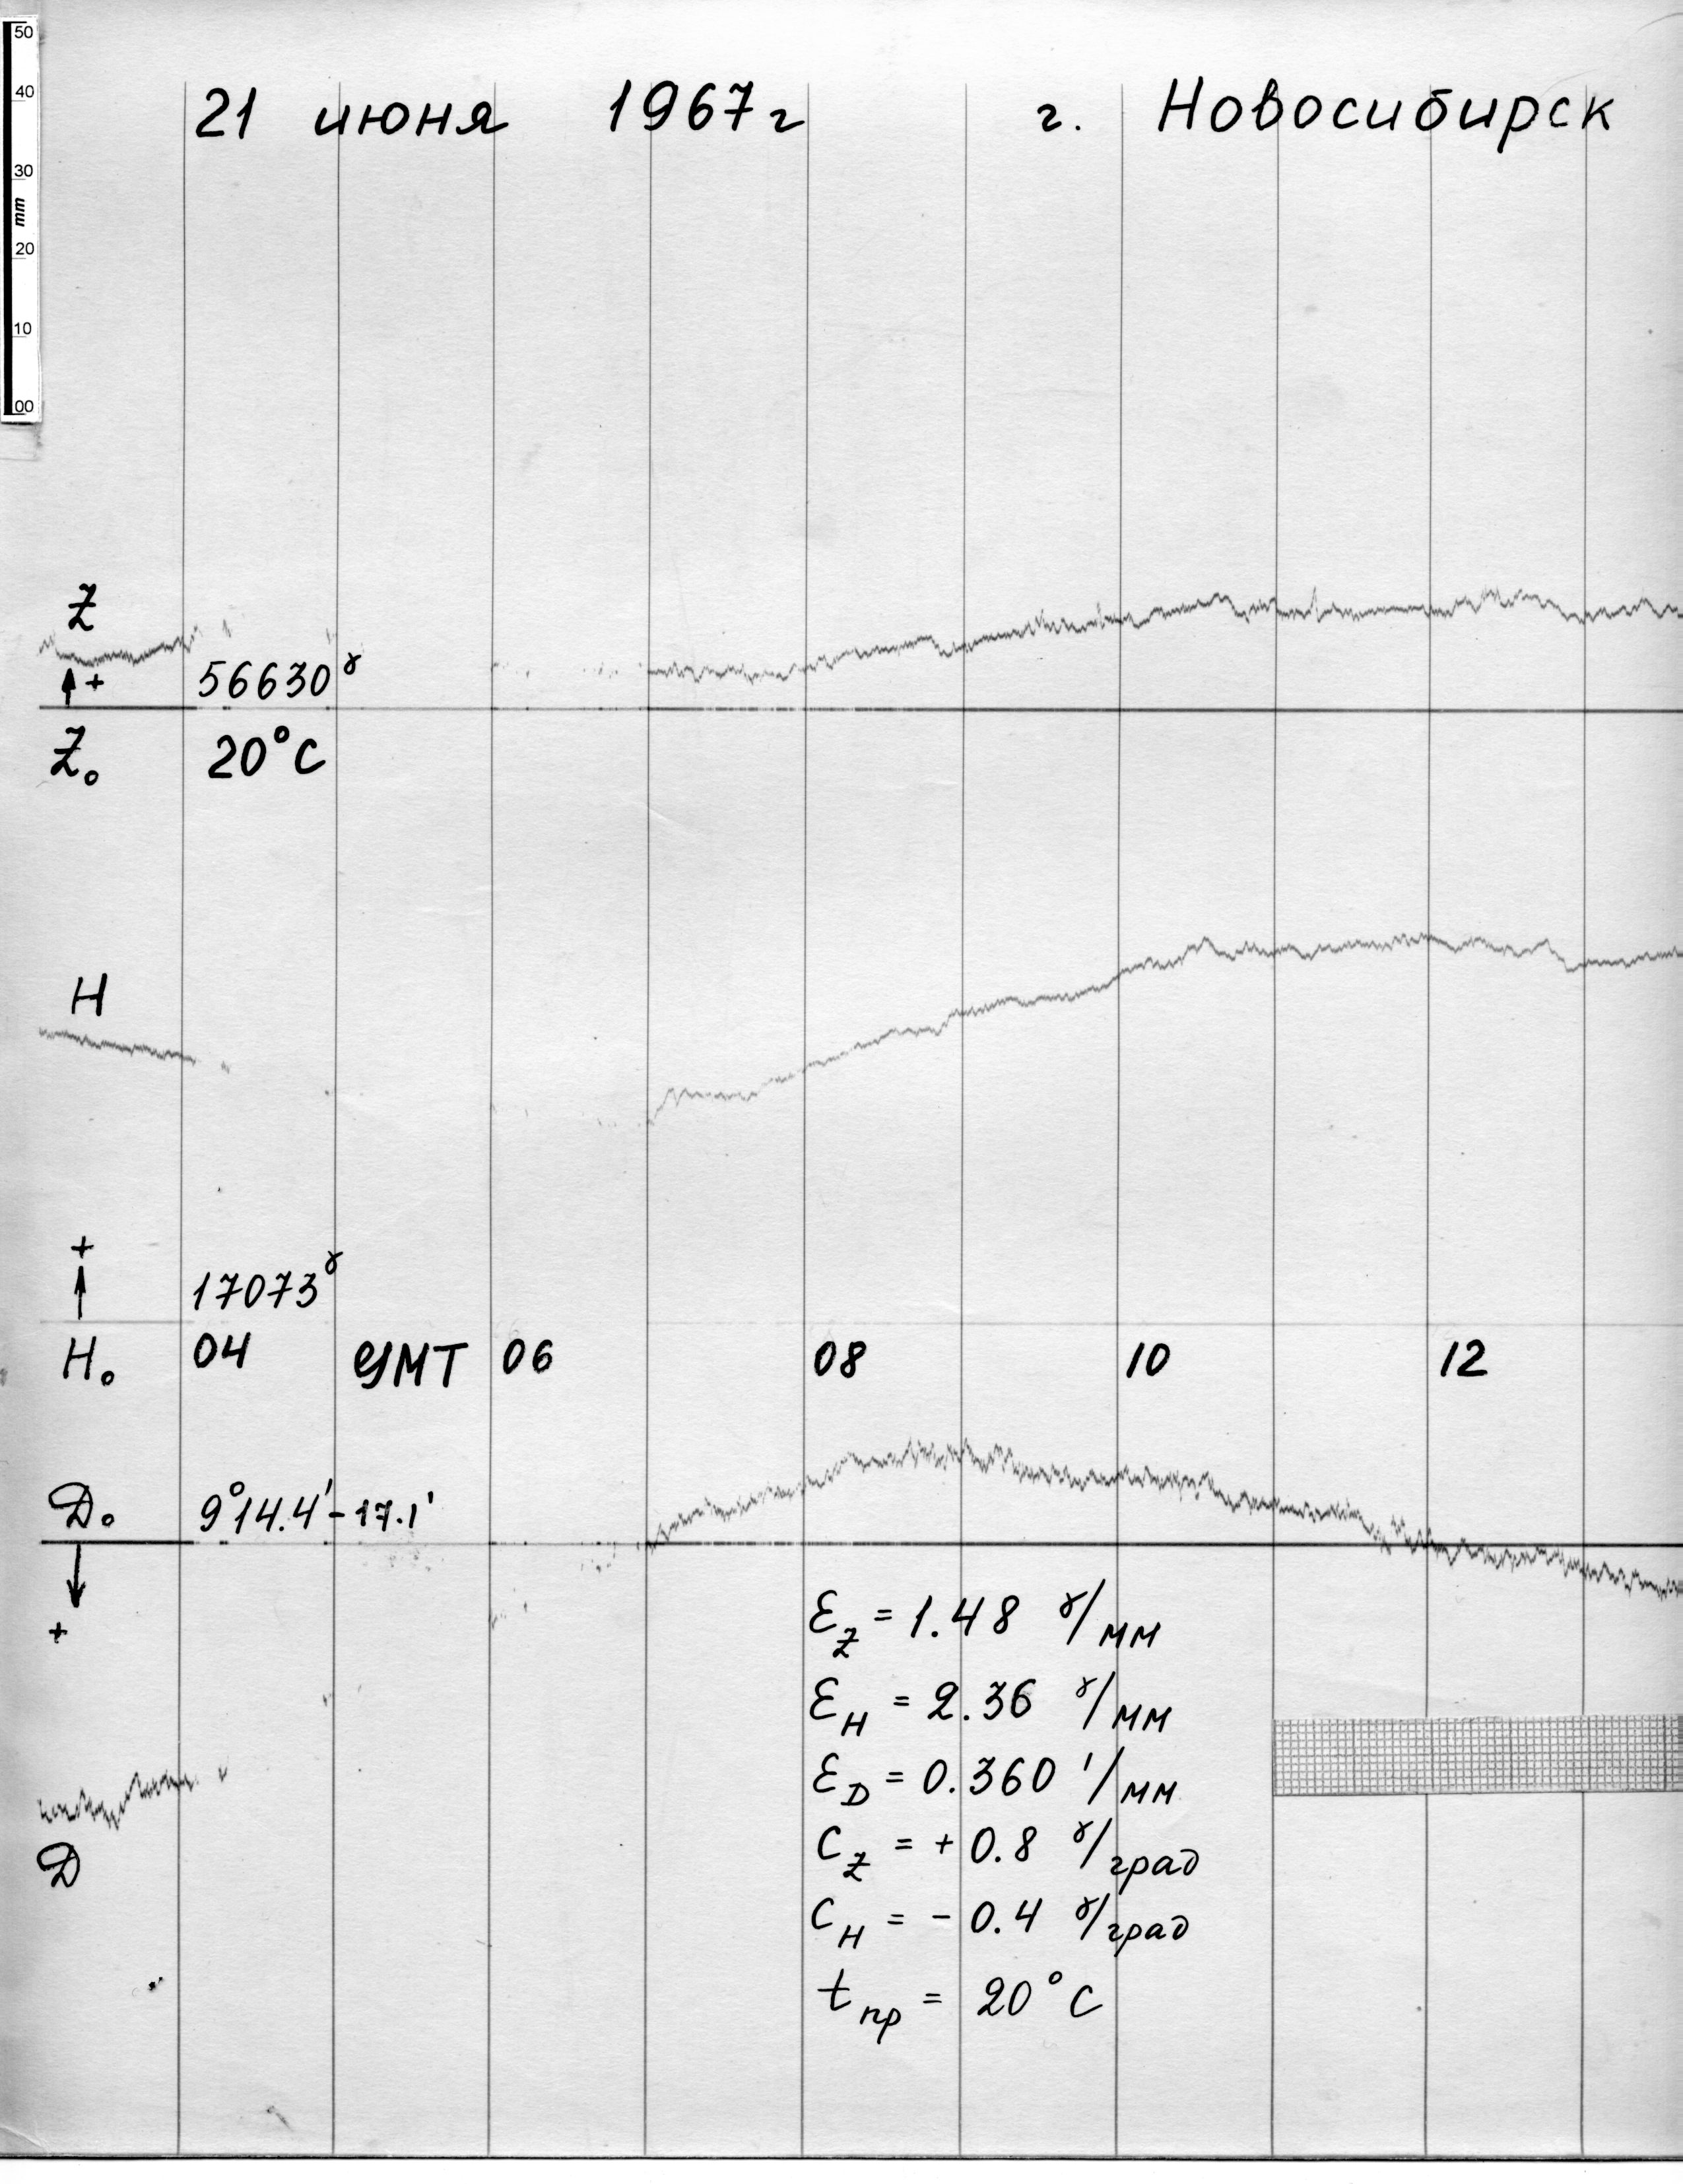 50
40
30
mm
20
10
00
21 июня 1967г г. Новосибирск
Z
+
56630γ
Z₀ 20°C
H
+
17073γ
H₀ 04 УМТ 06 08 10 12
D₀ 9°14.4'-17.1'
+
Ɛz = 1.48 γ/мм
ƐH = 2.36 γ/мм
ƐD = 0.360 '/мм
Cz = +0.8 γ/град
CH = -0.4 γ/град
tпр = 20°C
D